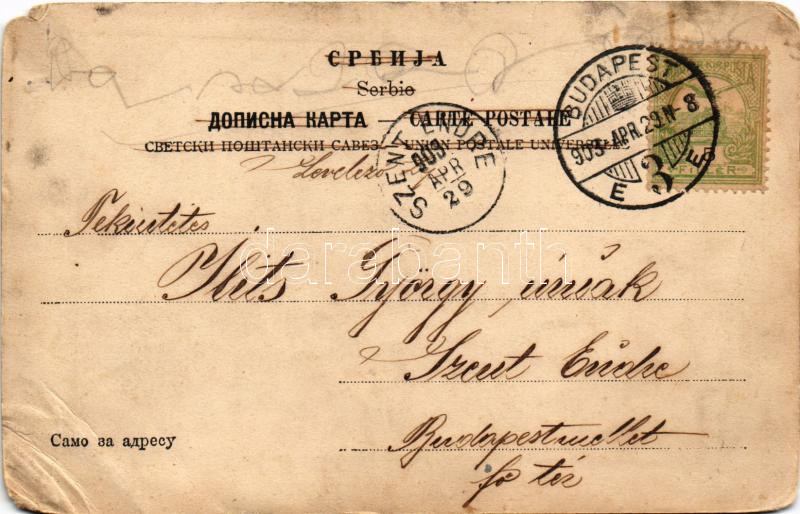 СРБИЈА
Serbie
ДОПИСНА КАРТА — CARTE POSTALE
СВЕТСКИ ПОШТАНСКИ САВЕЗ — UNION POSTALE UNIVERSELLE
BUDAPEST
909 APR. 29. N 8
E 3 E
SZENT ENDRE
909
APR
29
5
FILLER
Tekintetes
Györgу úrnak
Szent Endre
Budapest mellett
fő tér
Само за адресу
darabanth